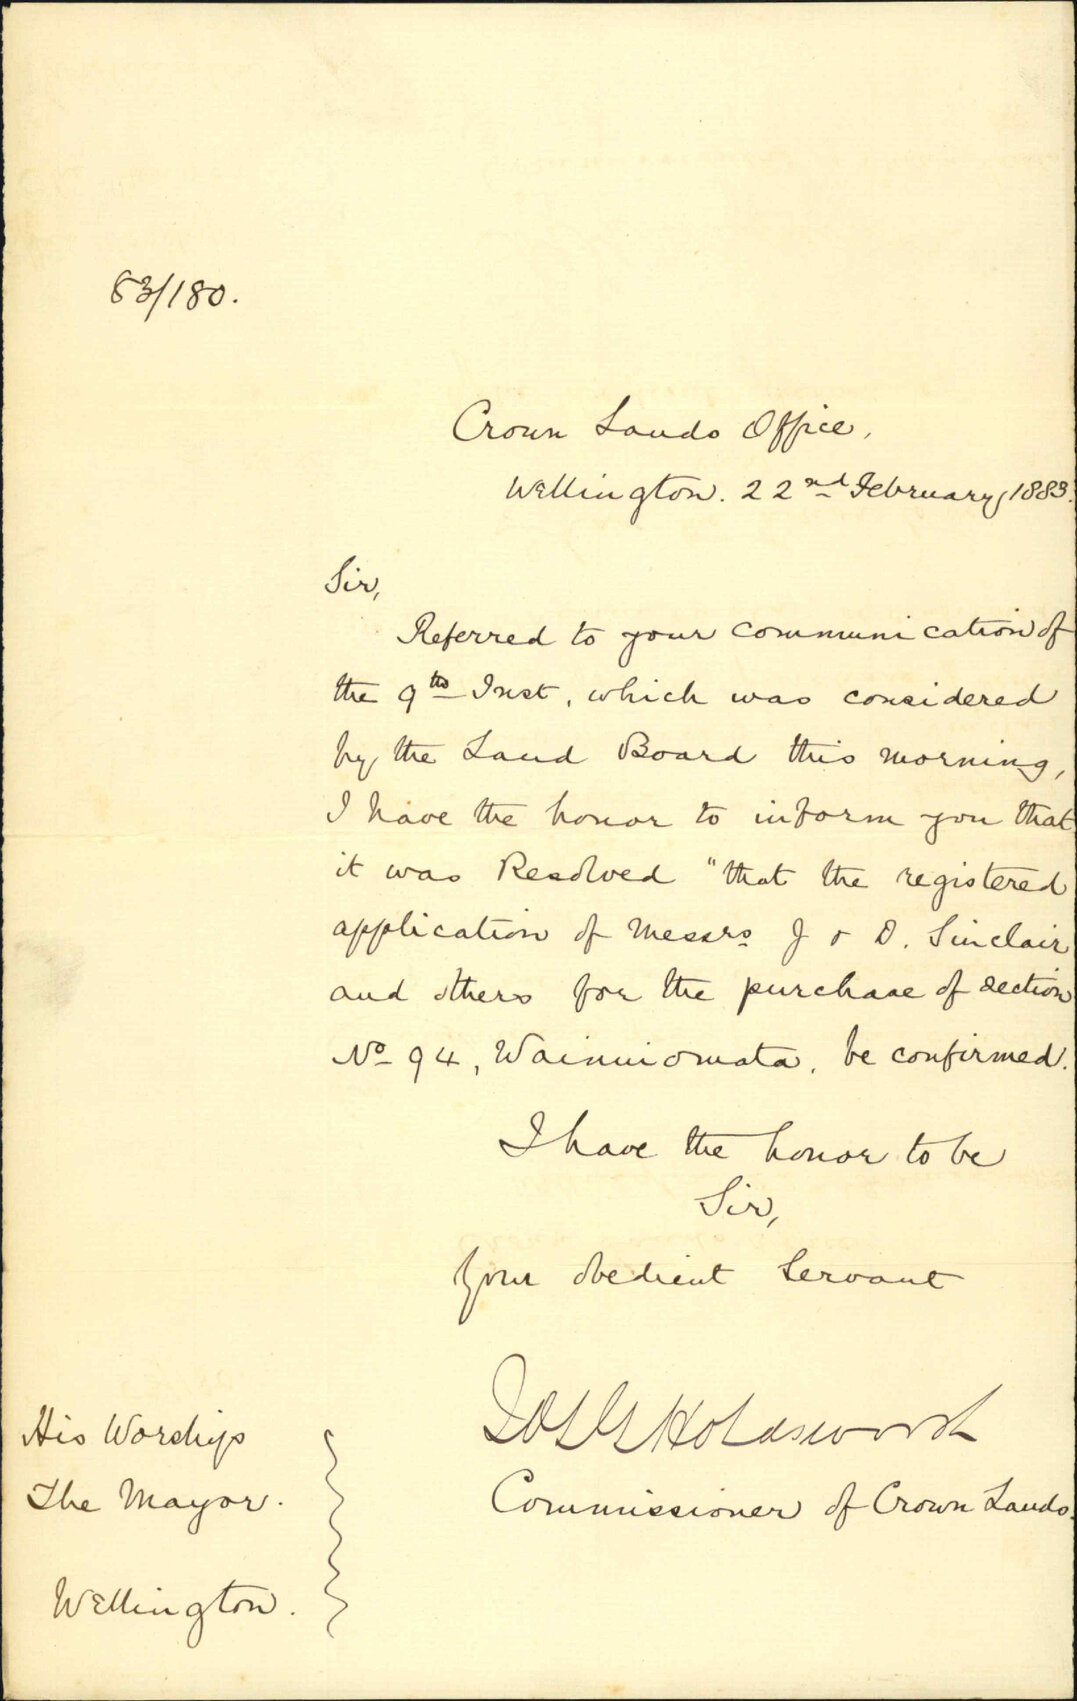 83/180.
Crown Lands Office,
Wellington. 22nd February, 1883.
Sir,
Referred to your communication of
the 9th Inst, which was considered
by the Land Board this morning,
I have the honor to inform you that
it was Resolved "that the registered
application of Messrs J & D. Sinclair
and others for the purchase of section
No 94, Wainuiomata, be confirmed.
I have the honor to be
Sir,
Your obedient Servant
Holdsworth
Commissioner of Crown Lands.
His Worship
The Mayor.
Wellington.